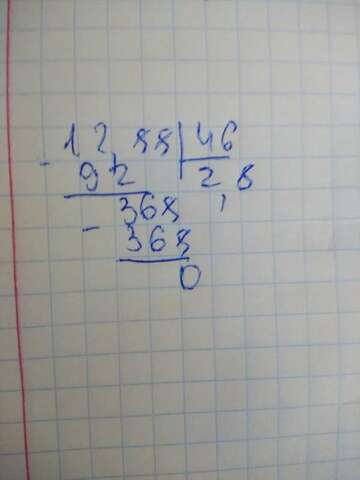 12,88 46
- 92 2,8
368
- 368
0